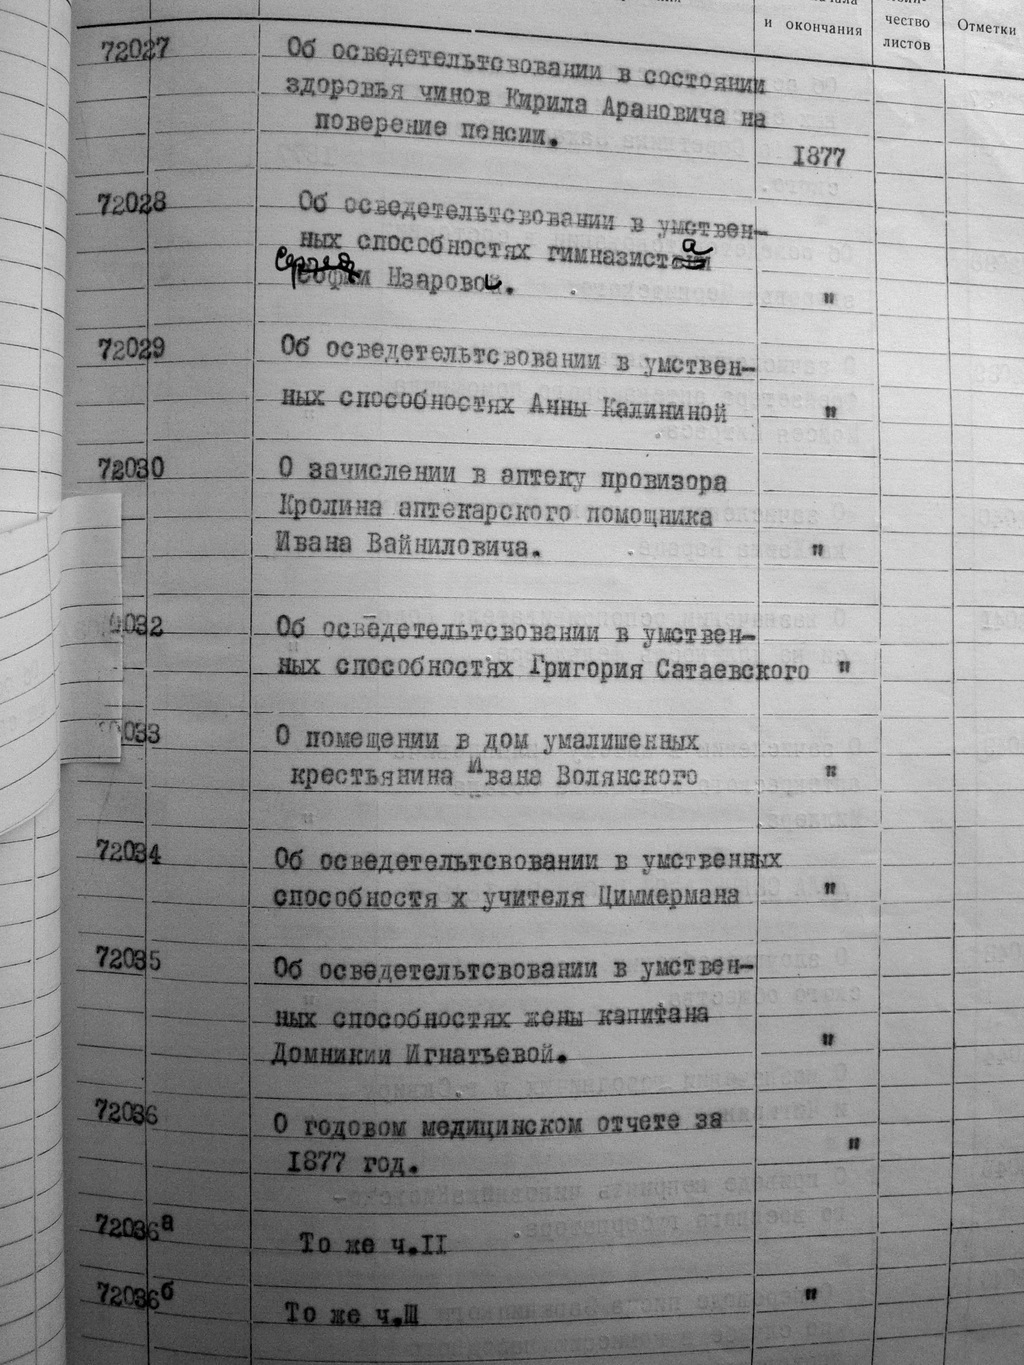 и окончания
чество
листов
Отметки
72027
Об осведетельтсвовании в состоянии
здоровья чинов Кирила Арановича на
поверение пенсии.
1877
72028
Об осведетельтсвовании в умствен-
ных способностях гимназиста
Сергея Нзарова.
"
72029
Об осведетельтсвовании в умствен-
ных способностях Анны Калининой "
72030
О зачислении в аптеку провизора
Кролина аптекарского помощника
Ивана Вайниловича. "
72032
Об осведетельтсвовании в умствен-
ных способностях Григория Сатаевского "
72033
О помещении в дом умалишенных
крестьянина Ивана Волянского "
72034
Об осведетельтсвовании в умственных
способностя х учителя Циммермана "
72035
Об осведетельтсвовании в умствен-
ных способностях жены капитана
Домникии Игнатьевой. "
72036
О годовом медицинском отчете за
1877 год. "
72036а
То же ч.II
72036б
То же ч.Ш "